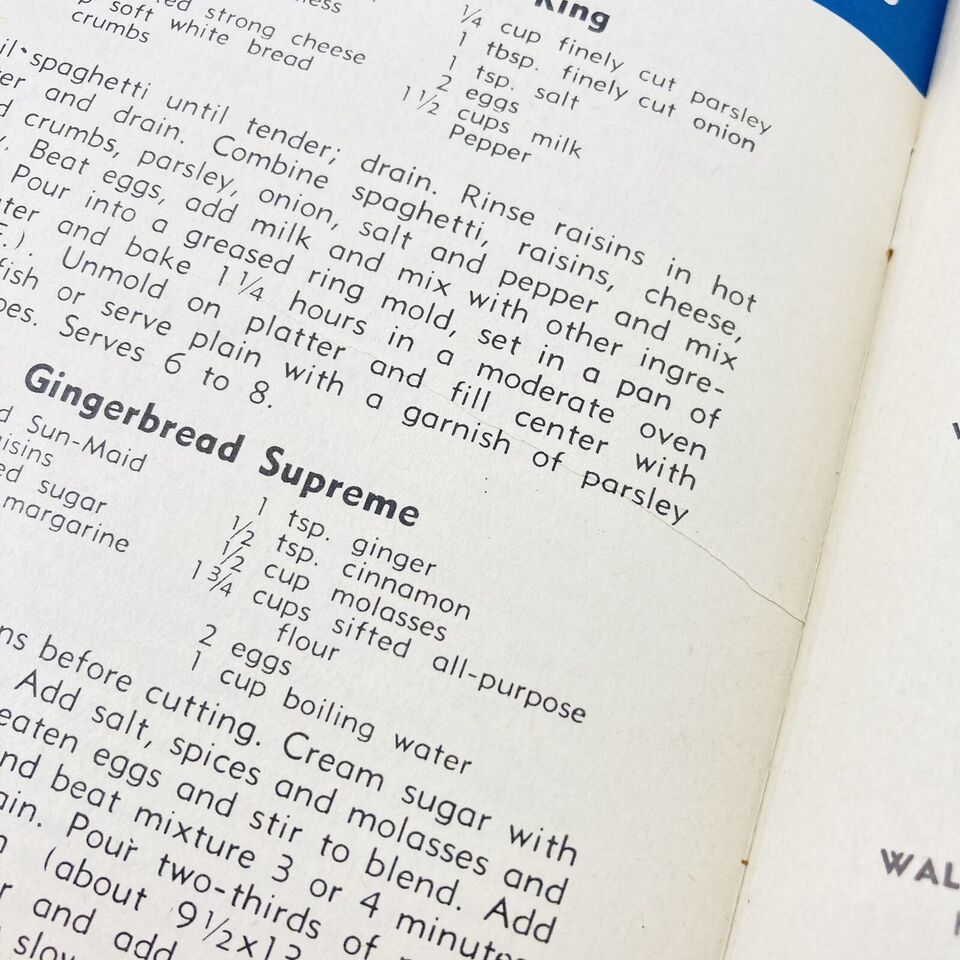 King
ed strong cheese
soft white bread
crumbs
¼ cup finely cut parsley
1 tbsp. finely cut onion
1 tsp. salt
2 eggs
1½ cups milk
Pepper
spaghetti until tender; drain. Rinse raisins in hot
er and drain. Combine spaghetti, raisins, cheese,
d crumbs, parsley, onion, salt and pepper and mix
Beat eggs, add milk and mix with other ingre-
Pour into a greased ring mold, set in a pan of
ter and bake 1¼ hours in a moderate oven
F.). Unmold on platter and fill center with
fish or serve plain with a garnish of parsley
oes. Serves 6 to 8.
Gingerbread Supreme
d Sun-Maid
aisins
ed sugar
margarine
1 tsp. ginger
½ tsp. cinnamon
½ cup molasses
1¾ cups sifted all-purpose
flour
2 eggs
1 cup boiling water
ns before cutting. Cream sugar with
Add salt, spices and molasses and
eaten eggs and stir to blend. Add
nd beat mixture 3 or 4 minutes
ain. Pour two-thirds of
(about 9½x13
r and add
slow
WAL